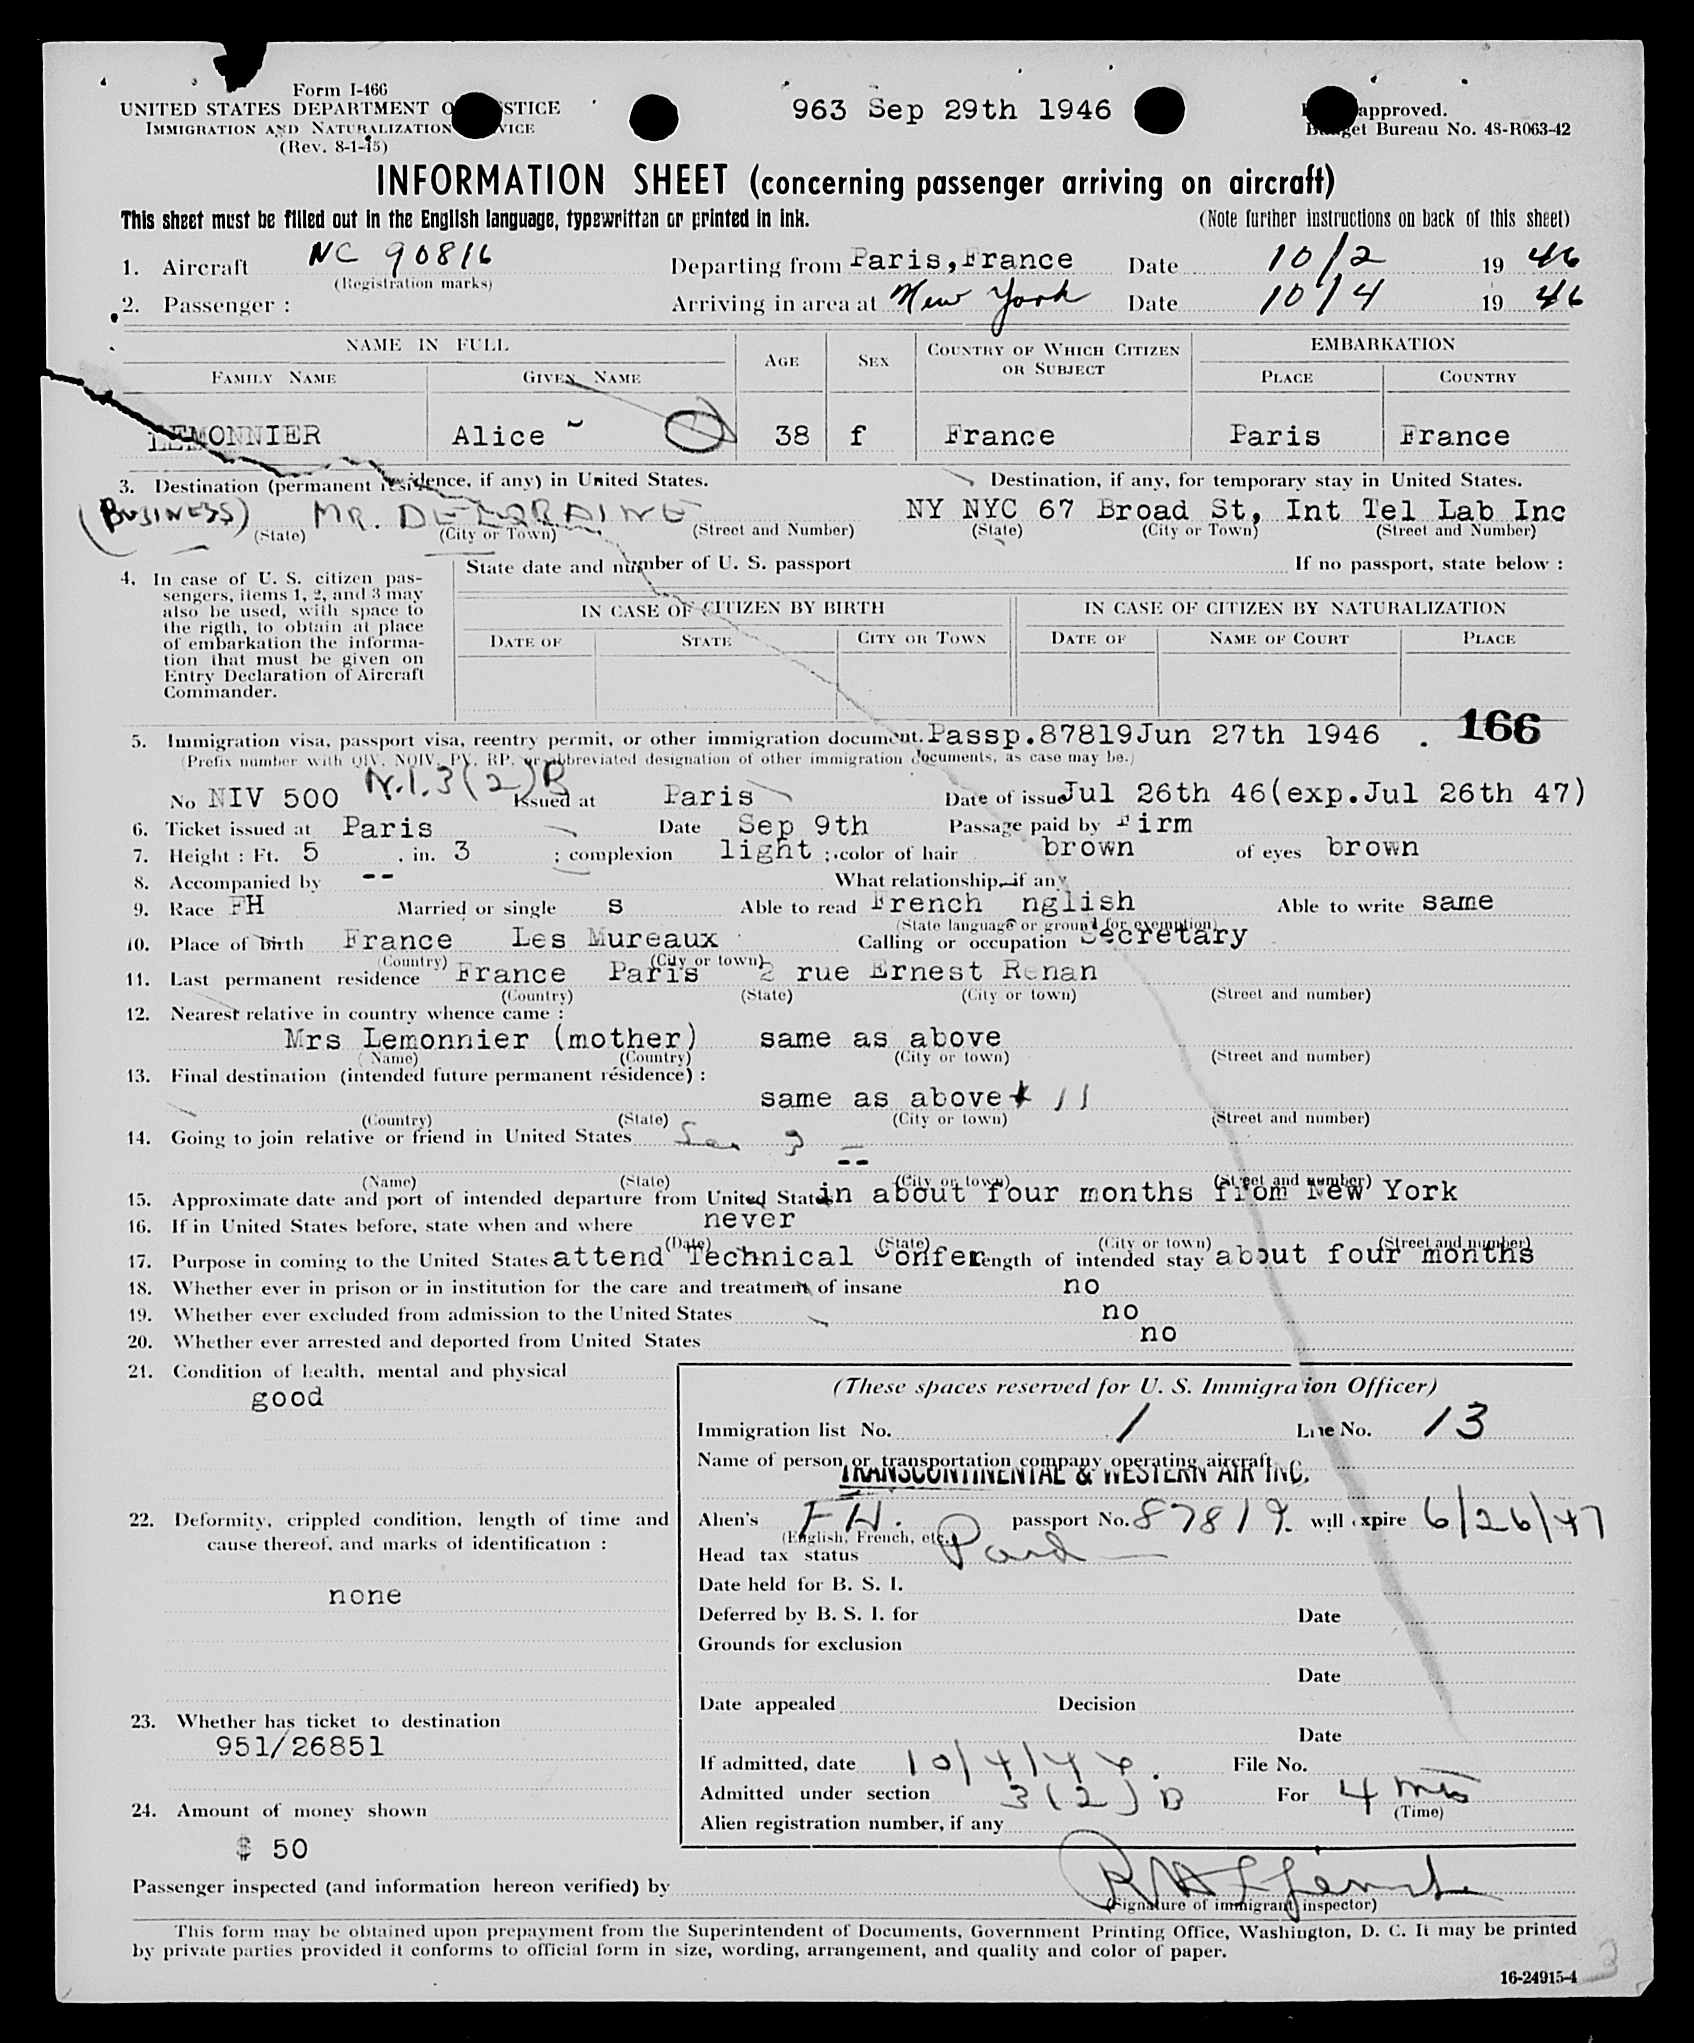 Form I-466
UNITED STATES DEPARTMENT O STICE
IMMIGRATION AND NATURALIZATION VICE
(Rev. 8-1-45)
963 Sep 29th 1946
approved.
Budget Bureau No. 48-R063-42
INFORMATION SHEET (concerning passenger arriving on aircraft)
This sheet must be filled out in the English language, typewritten or printed in ink. (Note further instructions on back of this sheet)
1. Aircraft NC 90816 Departing from Paris,France Date 10/2 19 46
(Registration marks)
2. Passenger : Arriving in area at New York Date 10/4 19 46
NAME IN FULL AGE SEX COUNTRY OF WHICH CITIZEN OR SUBJECT EMBARKATION
FAMILY NAME GIVEN NAME PLACE COUNTRY
LEMONNIER Alice 38 f France Paris France
3. Destination (permanent residence, if any) in United States. Destination, if any, for temporary stay in United States.
(BUSINESS) MR. DELORAINE NY NYC 67 Broad St, Int Tel Lab Inc
(State) (City or Town) (Street and Number) (State) (City or Town) (Street and Number)
4. In case of U. S. citizen pas-
sengers, items 1, 2, and 3 may
also be used, with space to
the rigth, to obtain at place
of embarkation the informa-
tion that must be given on
Entry Declaration of Aircraft
Commander.
State date and number of U. S. passport If no passport, state below :
IN CASE OF CITIZEN BY BIRTH IN CASE OF CITIZEN BY NATURALIZATION
DATE OF STATE CITY OR TOWN DATE OF NAME OF COURT PLACE
166
5. Immigration visa, passport visa, reentry permit, or other immigration document. Passp.87819Jun 27th 1946 .
(Prefix number with QIV, NQIV, PV, RP, or abbreviated designation of other immigration documents, as case may be.)
N.I.3(2)B
No NIV 500 Issued at Paris Date of issue Jul 26th 46(exp.Jul 26th 47)
6. Ticket issued at Paris Date Sep 9th Passage paid by Firm
7. Height : Ft. 5 . in. 3 ; complexion light ; color of hair brown of eyes brown
8. Accompanied by -- What relationship, if any
9. Race FH Married or single s Able to read French nglish Able to write same
(State language or ground for exemption)
10. Place of birth France Les Mureaux Calling or occupation Secretary
(Country) (City or town)
11. Last permanent residence France Paris 2 rue Ernest Renan
(Country) (State) (City or town) (Street and number)
12. Nearest relative in country whence came :
Mrs Lemonnier (mother) same as above
(Name) (Country) (City or town) (Street and number)
13. Final destination (intended future permanent résidence) :
same as above # 11
(Country) (State) (City or town) (Street and number)
14. Going to join relative or friend in United States See 3 --
--
(Name) (State) (City or town) (Street and number)
15. Approximate date and port of intended departure from United States in about four months from New York
16. If in United States before, state when and where never
(Date) (State) (City or town) (Street and number)
17. Purpose in coming to the United States attend Technical Confer Length of intended stay about four months
18. Whether ever in prison or in institution for the care and treatment of insane no
19. Whether ever excluded from admission to the United States no
20. Whether ever arrested and deported from United States no
21. Condition of health, mental and physical
good
22. Deformity, crippled condition, length of time and
cause thereof, and marks of identification :
none
23. Whether has ticket to destination
951/26851
24. Amount of money shown
$ 50
(These spaces reserved for U. S. Immigration Officer)
Immigration list No. 1 Line No. 13
Name of person or transportation company operating aircraft
TRANSCONTINENTAL & WESTERN AIR INC.
Alien's FH. passport No. 87819 will expire 6/26/47
(English, French, etc.)
Head tax status Paid
Date held for B. S. I.
Deferred by B. S. I. for Date
Grounds for exclusion
Date
Date appealed Decision
Date
If admitted, date 10/4/46. File No.
Admitted under section 3(2)B For 4 mos
(Time)
Alien registration number, if any
Passenger inspected (and information hereon verified) by
(Signature of immigrant inspector)
This form may be obtained upon prepayment from the Superintendent of Documents, Government Printing Office, Washington, D. C. It may be printed
by private parties provided it conforms to official form in size, wording, arrangement, and quality and color of paper.
16-24915-4
3